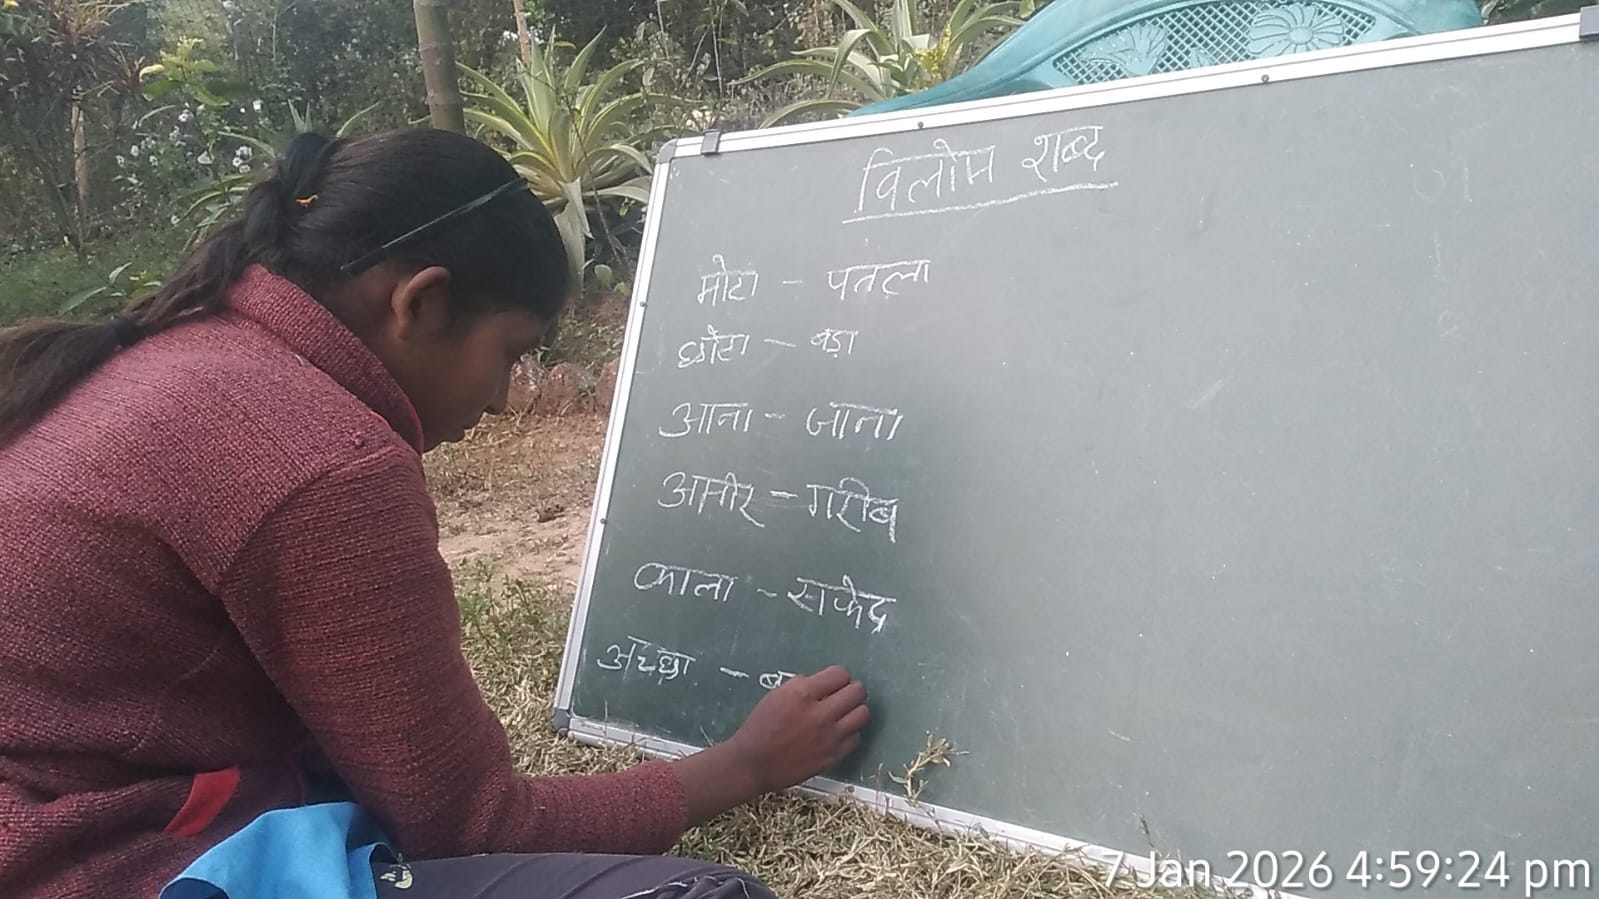 विलोम शब्द
मोटा - पतला
छोटा - बड़ा
आना - जाना
आमीर - गरीब
काला - सफेद
अच्छा - 
7 Jan 2026 4:59:24 pm